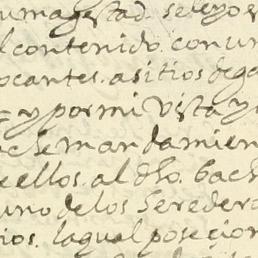 su magestad. se leyo e
l contenido. con un
ocantes. a sitios de ga
y por mi vista y
mandamien
ellos. al dho. bach
uno de los heredero
ios. la qual posecion